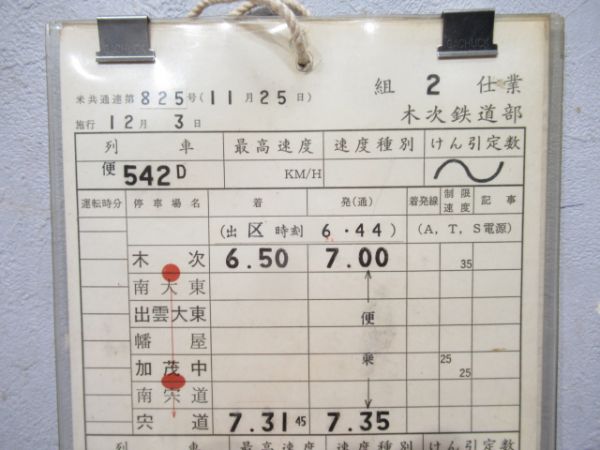 米共通達第825号(11月25日)
組 2 仕業
施行 12月 3日
木次鉄道部
列車 最高速度 速度種別 けん引定数
便 542D KM/H
運転時分 停車場名 着 発(通) 着発線 制限速度 記事
(出区時刻 6.44) (A,T,S電源)
木次 6.50 7.00 35
南大東
出雲大東 便
幡屋 乗
加茂中 25 25
南宍道
宍道 7.31 45 7.35
列車 最高速度 速度種別 けん引定数